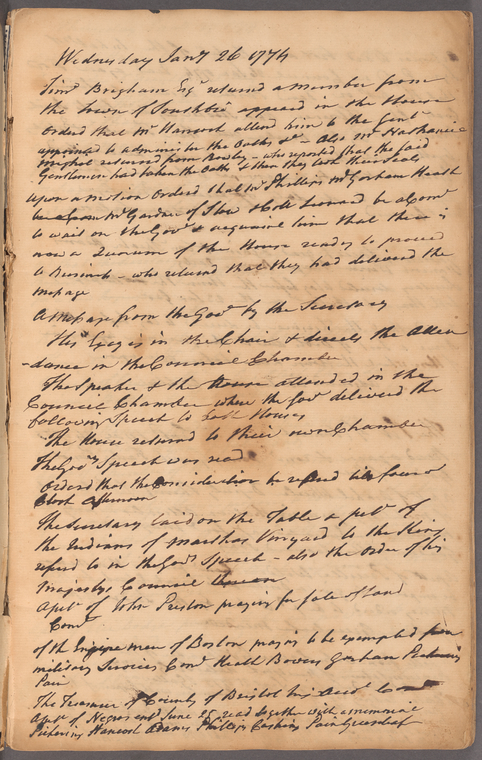 Wednesday Jany 26 1774
Timo Brigham Esqr returned a member from
the town of Southbo appeared in the House
Ordered that Mr Hancock attend him to the Gentn
appointed to administer the Oaths &c - Also Mr Nathaniel
Mighel returned from Rowley - who reported that the said
Gentlemen had taken the Oaths & then they took their Seats
Upon a motion Ordered that Mr Phillips Mr Gorham Heath
Mr Gardner of Stow & Coll be a Comee
to wait on the Govr & acquaint him that there is
now a Quorum of the House ready to proceed
to Business - who returned that they had delivered the
message
A message from the Govr by the Secretary
His Excy is in the Chair & directs the Atten
-dance in the Council Chamber
The Speaker & the House attended in the
Council Chamber where the Govr delivered the
following Speech to both Houses
The House returned to their own Chamber
The Govrs Speech was read
Orderd that the Consideration be referd till four o
Clock afternoon
The Secretary laid on the Table a petn of
the Indians of Marthas Vinyard to the King
referd to in the Govrs Speech - also the Order of his
Majestys Council
A petn of John Preston praying for sale of Land
Comee
of the Engine men of Boston prayg to be exempted from
military Services Comee Heath Bowers Gorham Pickering
Pain
The Treasurer of County of Bristol his Accot
A petn of Negros entd June 25 read together with a memorial
Pickering Hancock Adams Phillips Cushing Pain Greenleaf